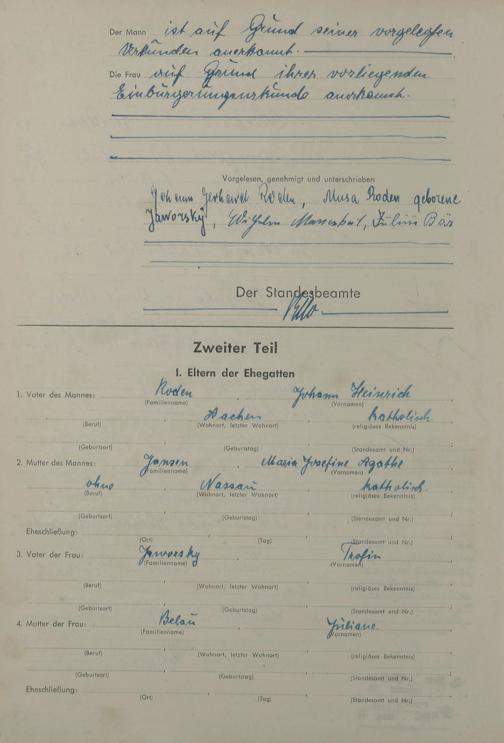 Der Mann ist auf Grund seiner vorgelegten
Urkunden anerkannt.
Die Frau auf Grund ihrer vorliegenden
Einbürgerungsurkunde anerkannt.
Vorgelesen, genehmigt und unterschrieben
Johann Gerhard Roden, Musa Roden geborene
Jaworsky, Wilhelm Julius Bär
Der Standesbeamte
Zweiter Teil
I. Eltern der Ehegatten
1. Vater des Mannes: Roden Johann Heinrich
(Familienname) (Vornamen)
Aachen katholisch
(Beruf) (Wohnort, letzter Wohnort) (religiöses Bekenntnis)
(Geburtsort) (Geburtstag) (Standesamt und Nr.)
2. Mutter des Mannes: Jansen Maria Josefine Agathe
(Familienname) (Vornamen)
ohne Nassau katholisch
(Beruf) (Wohnort, letzter Wohnort) (religiöses Bekenntnis)
(Geburtsort) (Geburtstag) (Standesamt und Nr.)
Eheschließung:
(Ort) (Tag) (Standesamt und Nr.)
3. Vater der Frau: Jaworsky Trofin
(Familienname) (Vornamen)
(Beruf) (Wohnort, letzter Wohnort) (religiöses Bekenntnis)
(Geburtsort) (Geburtstag) (Standesamt und Nr.)
4. Mutter der Frau: Belau Juliane
(Familienname) (Vornamen)
(Beruf) (Wohnort, letzter Wohnort) (religiöses Bekenntnis)
(Geburtsort) (Geburtstag) (Standesamt und Nr.)
Eheschließung:
(Ort) (Tag) (Standesamt und Nr.)